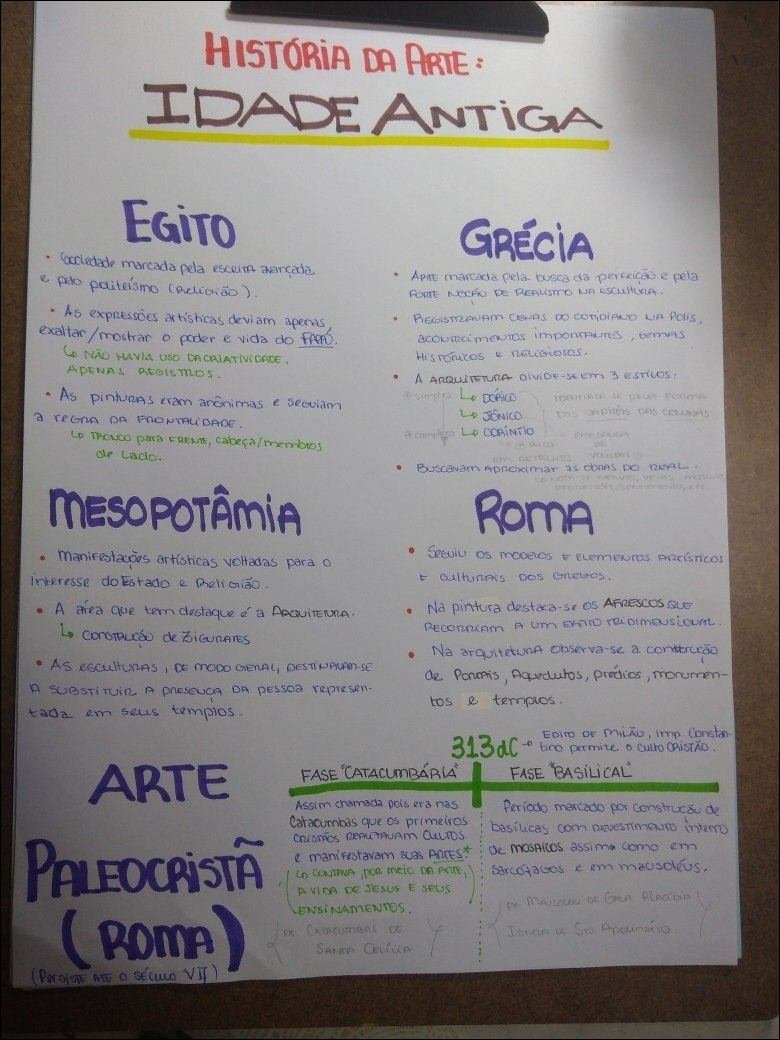 HISTÓRIA DA ARTE:
IDADE ANTIGA
EGITO
• Sociedade marcada pela escrita avançada
e pelo politeísmo (Religião).
• As expressões artísticas deviam apenas
exaltar/mostrar o poder e vida do FARAÓ.
↳ NÃO HAVIA USO DA CRIATIVIDADE.
APENAS REGISTROS.
• As pinturas eram anônimas e seguiam
a REGRA DA FRONTALIDADE.
↳ TRONCO para FRENTE, cabeça/membros
de Lado.
GRÉCIA
• ARTE marcada pela busca da perfeição e pela
FORTE NOÇÃO DE REALISMO NA ESCULTURA.
• REGISTRAVAM CENAS DO COTIDIANO NA PÓLIS,
ACONTECIMENTOS IMPORTANTES, TEMAS
HISTÓRICOS E RELIGIOSOS.
• A ARQUITETURA DIVIDE-SE EM 3 ESTILOS:
⊕ simples ↳ DÓRICO
↳ JÔNICO
⊕ complexo ↳ CORÍNTIO
IDENTIFICADOS PELA FORMA
DOS CAPITÉIS DAS COLUNAS
EM DETALHES
• Buscavam APROXIMAR AS OBRAS DO REAL.
MESOPOTÂMIA
• Manifestações artísticas voltadas para o
interesse do Estado e Religião.
• A área que tem destaque é a ARQUITETURA.
↳ CONSTRUÇÃO de ZIGURATES
• AS ESCULTURAS, DE MODO GERAL, DESTINAVAM-SE
A SUBSTITUIR A PRESENÇA DA PESSOA REPRESEN-
tada em seus templos.
ROMA
• SEGUIU OS MODELOS E ELEMENTOS ARTÍSTICOS
E CULTURAIS DOS GREGOS.
• Na pintura destaca-se os AFRESCOS QUE
RECORRIAM A UM EFEITO TRIDIMENSIONAL.
• Na arquitetura observa-se a construção
de PORTAIS, Aquedutos, prédios, monumen-
tos e templos.
ARTE
PALEOCRISTÃ
(ROMA)
(PERSISTE ATÉ O SÉCULO VII)
313 dC → EDITO DE MILÃO, imp. Constan-
tino permite o culto CRISTÃO.
FASE "CATACUMBÁRIA"
Assim chamada pois era nas
Catacumbas que os primeiros
CRISTÃOS REALIZAVAM CULTOS
e manifestavam suas ARTES.*
↳ CONTAVA, POR MEIO DA ARTE,
A VIDA DE JESUS E SEUS
ENSINAMENTOS.
EX: CATACUMBAS DE
SANTA CECÍLIA
FASE "BASILICAL"
Período marcado por construção de
basílicas com revestimento interno
de MOSAICOS assim como em
sarcófagos e em mausoléus.
EX: MAUSOLÉU DE GALA PLACÍDIA
IGREJA DE STO. APOLINÁRIO.